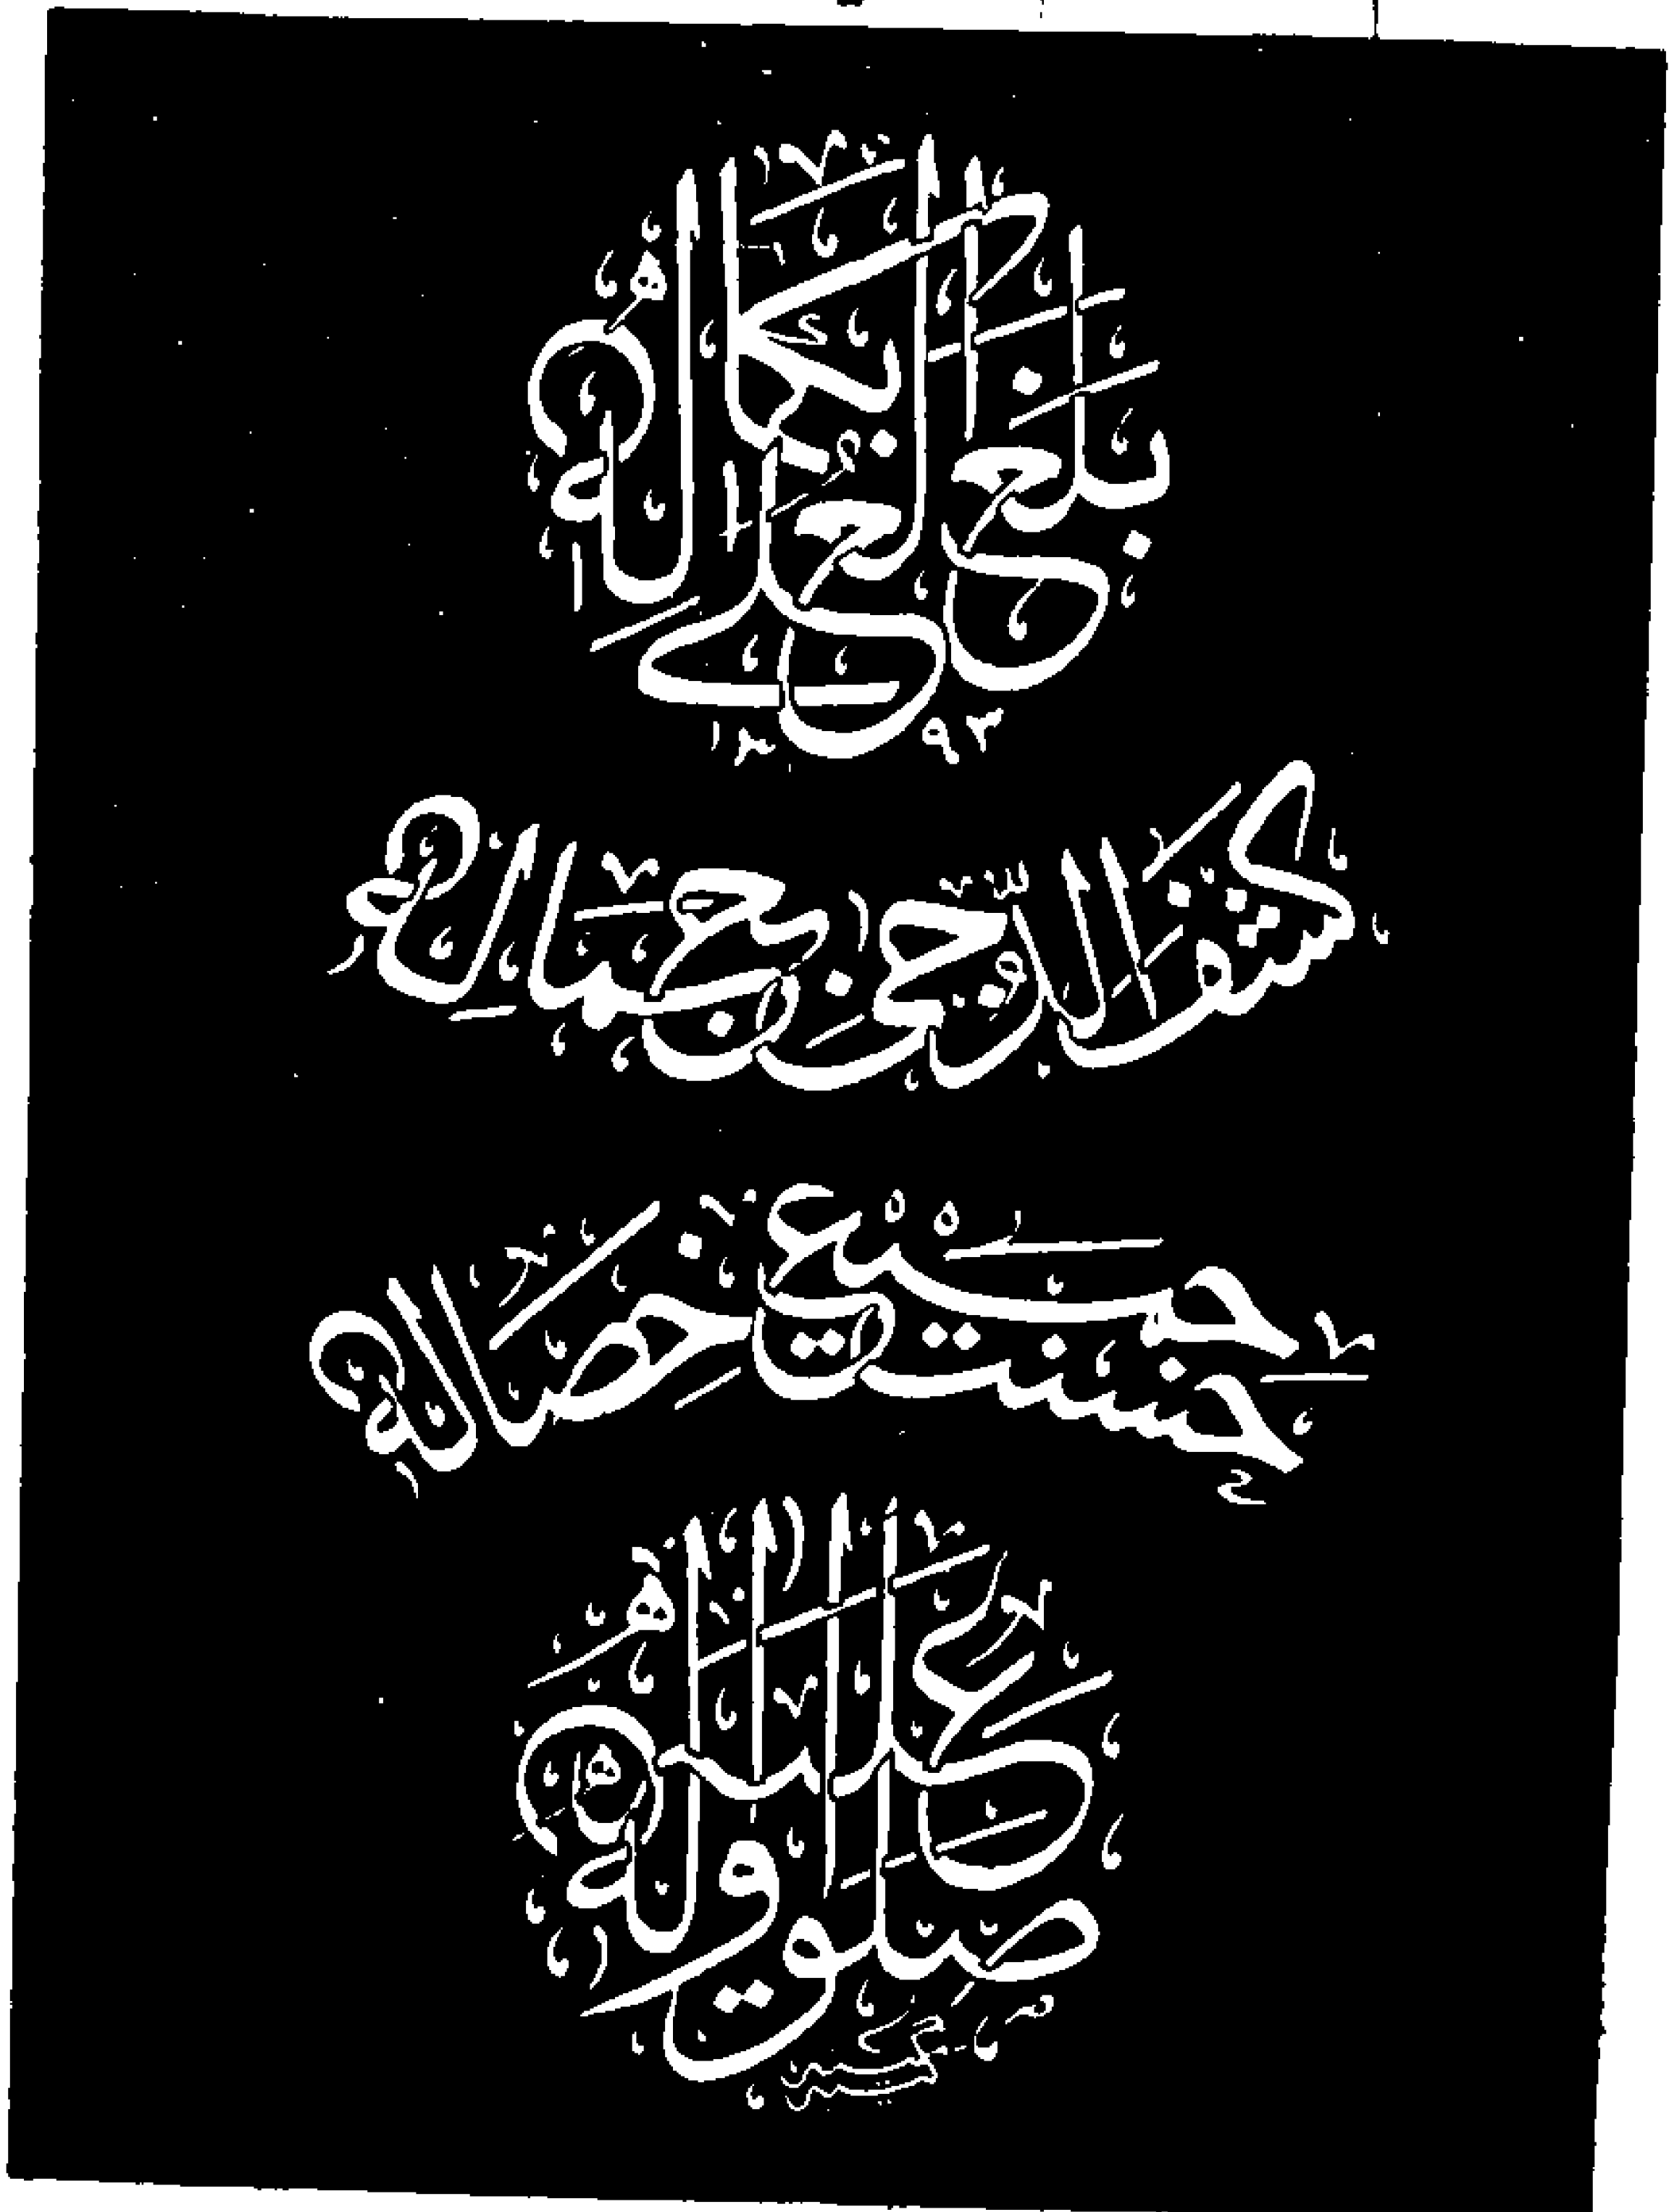 بلغ العلى بكماله
كشف الدجى بجماله
حسنت جميع خصاله
صلوا عليه وآله